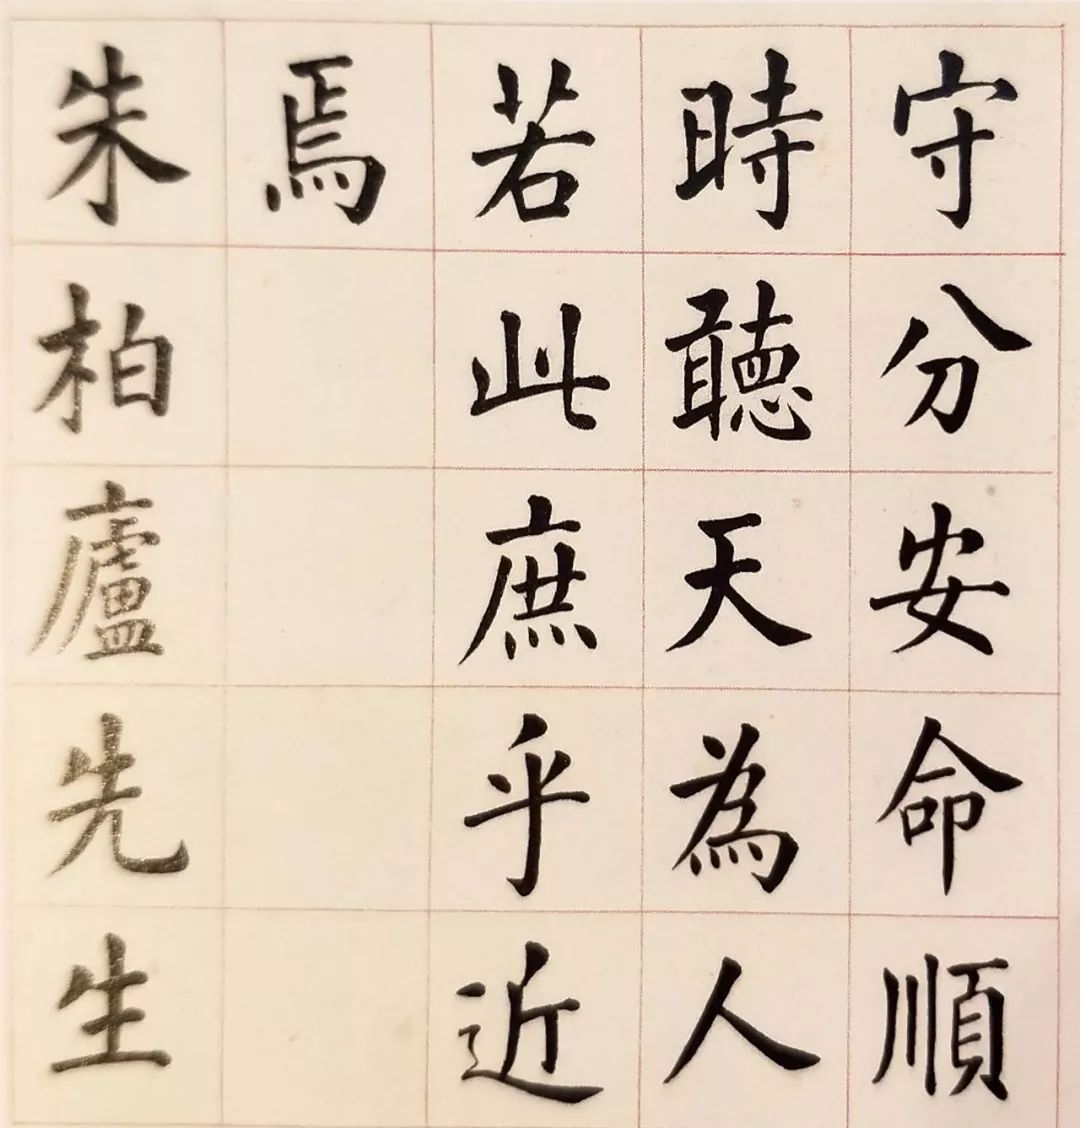 守分安命順
時聽天為人
若此庶乎近
焉
朱柏廬先生